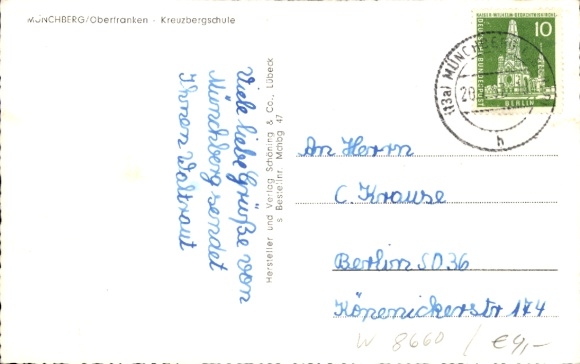 MÜNCHBERG/Oberfranken - Kreuzbergschule
Viele liebe Grüße von
Münchberg sendet
Ihnen Waltraut
Hersteller und Verlag Schöning & Co., Lübeck
s Bestellnr. Mchbg 47
KAISER-WILHELM-GEDÄCHTNIS-KIRCHE
10
DEUTSCHE BUNDESPOST
BERLIN
(13a) MÜNCHBERG
20
h
An Herrn
C. Krause
Berlin SO 36
Köpenickerstr 174
W 8660 / €4,-